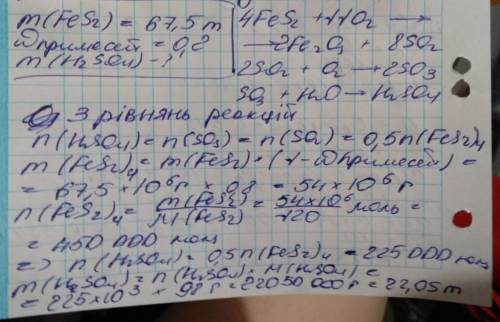 m(FeS₂) = 67,5 т
ω примесей = 0,2
m(H₂SO₄) - ?
4FeS₂ + 11O₂ →
→ 2Fe₂O₃ + 8SO₂
2SO₂ + O₂ → 2SO₃
SO₃ + H₂O → H₂SO₄
З рівнянь реакцій
n(H₂SO₄) = n(SO₃) = n(SO₂) = 0,5n(FeS₂)ч
m(FeS₂)ч = m(FeS₂) × (1-ω примесей) =
= 67,5 × 10⁶ г × 0,8 = 54 × 10⁶ г
n(FeS₂)ч = m(FeS₂)/M(FeS₂) = 54×10⁶/120 моль =
= 450 000 моль
=> n(H₂SO₄) = 0,5n(FeS₂)ч = 225 000 моль
m(H₂SO₄) = n(H₂SO₄) × M(H₂SO₄) =
= 225 × 10³ × 98 г = 22050 000 г = 22,05 т